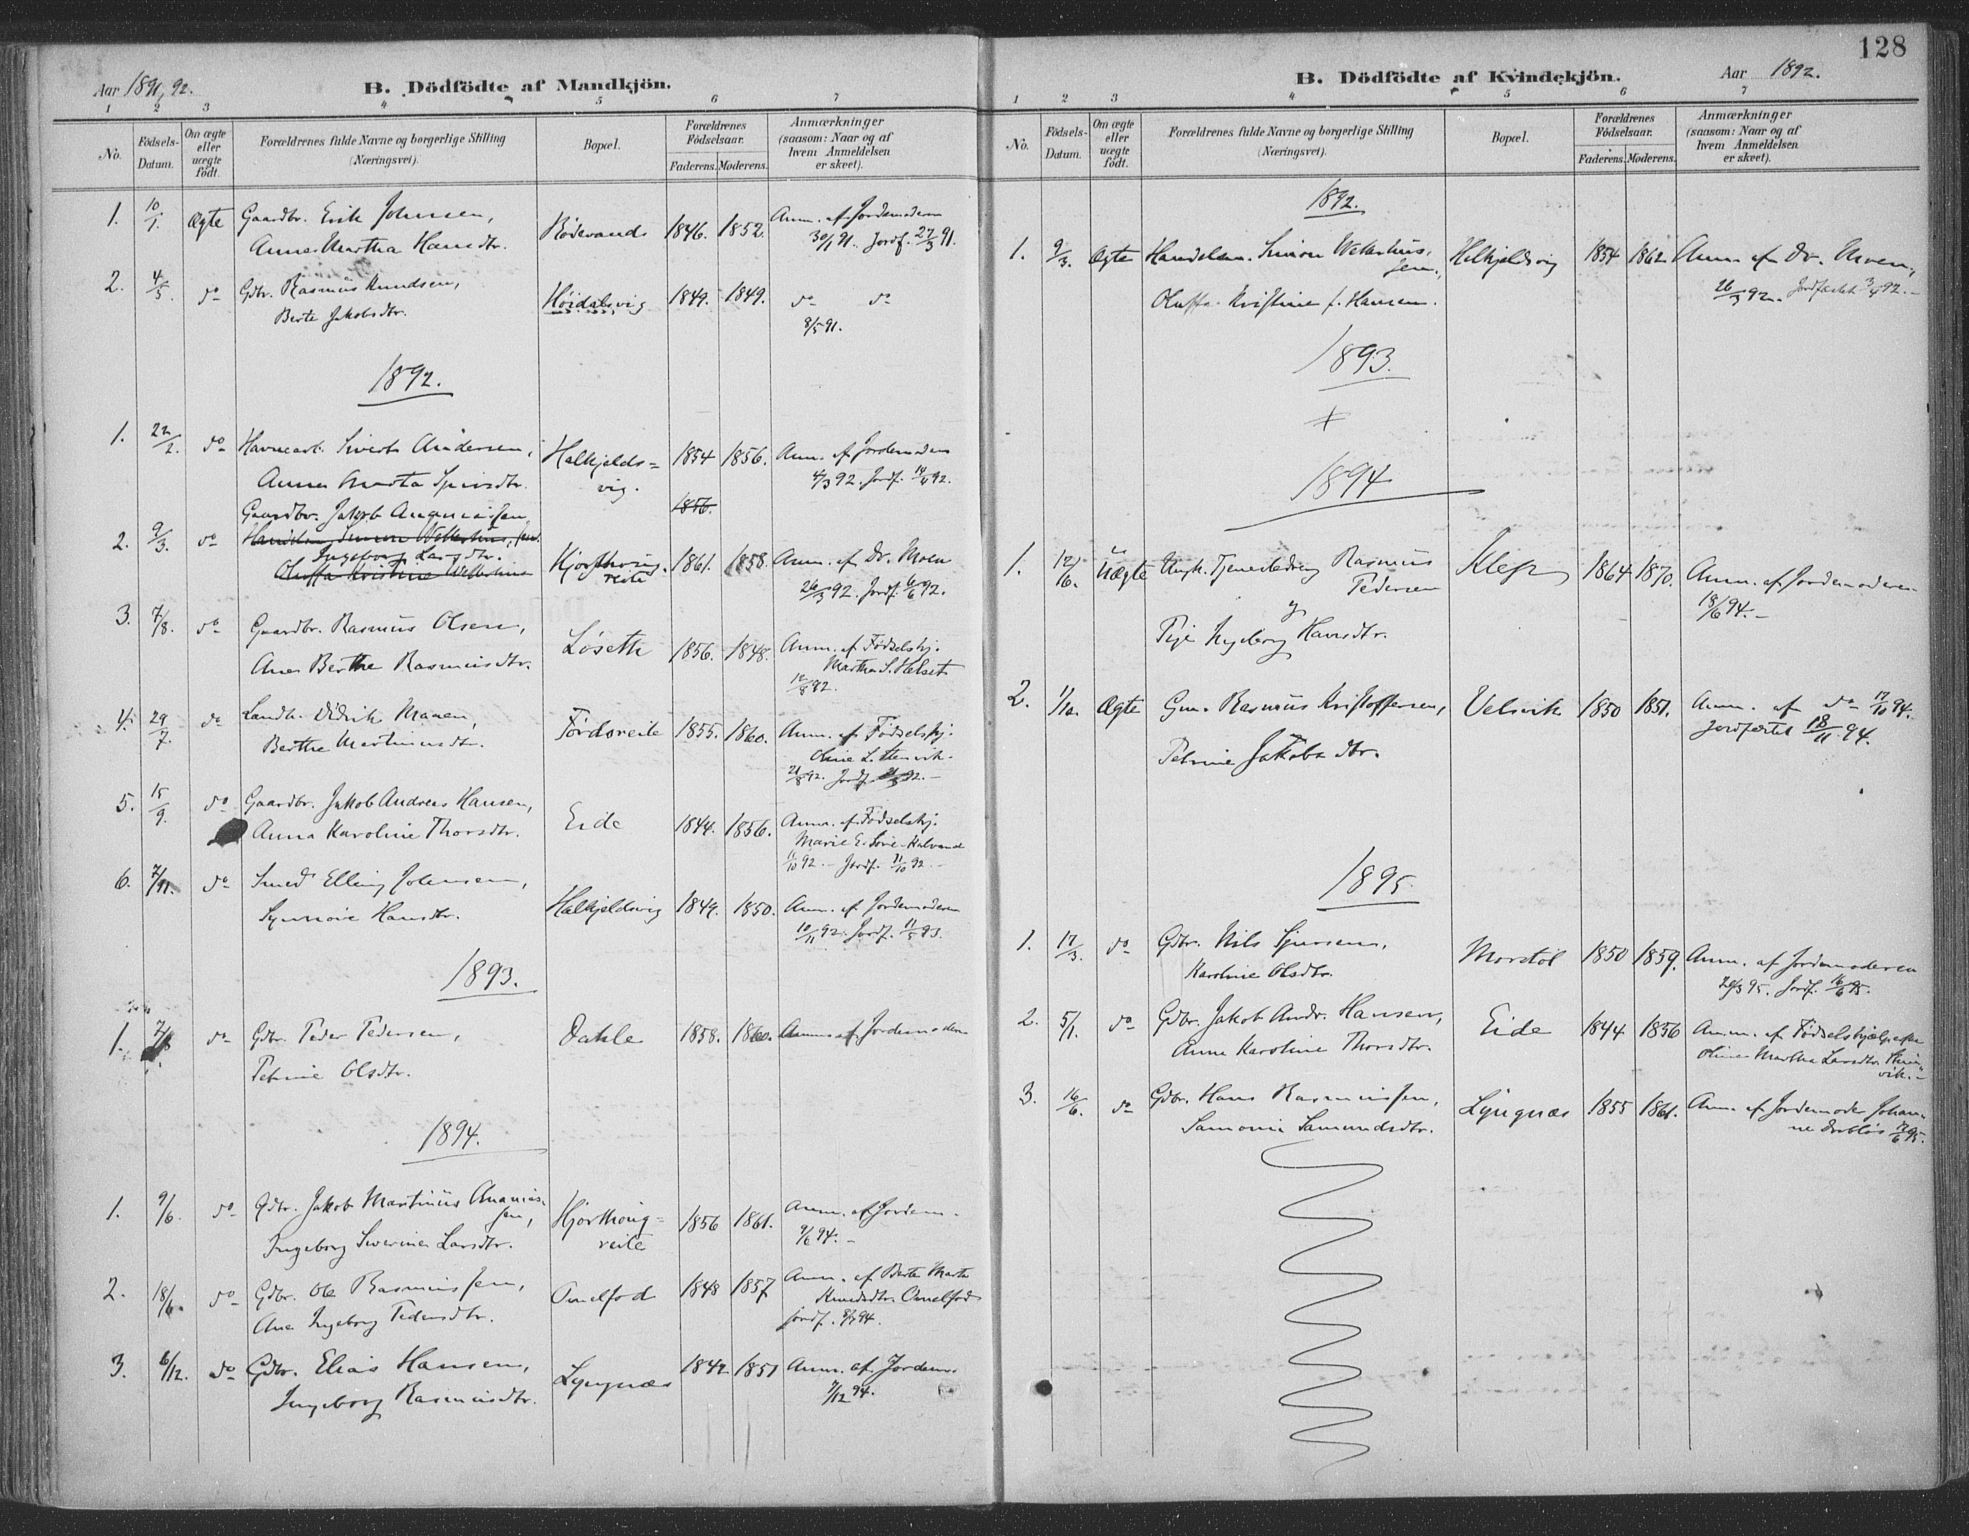 Aar 1891, 92.
B. Dödfödte af Mandkjön.
1 2 3 4 5 6 7
No.
Födsels-
Datum.
Om ægte
eller
uægte
födt.
Forældrenes fulde Navne og borgerlige Stilling
(Næringsvei).
Bopæl.
Forældrenes
Födselsaar.
Faderens. Moderens.
Anmærkninger
(saasom: Naar og af
hvem Anmeldelsen
er skeet).
1. 10/1. Ægte Gaardbr. Erik Johnsen, Rödevand 1846. 1852. Anm. af Jordemoderen
Anne Martha Hansdtr. 30/1 91. Jordf. 27/3 91.
2. 4/5. do Gdbr. Rasmus Knudsen, Höidalsvig 1849. 1849. do do
Berte Jakobsdtr. 8/5 91.
1892.
1. 22/2. do Havnearb. Sivert Andersen, Halkjelds= 1854 1856. Anm. af Jordemoderen
Anne Marta vig. 4/3 92. Jordf. 92.
Gaardbr. Jakob Ananiassen 1856.
2. 9/3. do Handelsm. Simon Wetterhus, sen.
Ingeborg Larsdtr. Hjorthoug- 1861. 1858. Anm. af Dr. Moen
Oluffa Kristine Wetterhus reite 26/3 92. Jordf. 6/6 92.
3. 7/8. do Gaardbr. Rasmus Olsen, Løseth 1856. 1848. Anm. af Födselshj.
Ane Berthe Rasmusdtr. Martha S. Helset
12/8 92.
4. 29/7. do Landh. Didrik Manen, Fördsreite 1855. 1860. Anm. af Födselshj.
Berthe Martinusdtr. Oline L.
92. Jordf. 92. –
5. 15/9. do Gaardbr. Jakob Andreas Hansen, Eide 1844. 1856. Anm. af Födselshj.
Anna Karoline Thorsdtr. Marie E.
11/10 92. – Jordf. 11/10 92. –
6. 7/11. do Smed Elling Johnsen, Halkjeldsvig 1849. 1850. Anm. af Jordemoderen
Synnöve Hansdtr. 10/11 92. Jordf. 11/5 93.
1893.
1. do Gdbr. Peder Pedersen, Dahle 1858. 1860. Anm. af Jordemoderen
Petrine Olsdtr.
1894.
1. 9/6. do Gdbr. Jakob Martinus Ananias- Hjorthoug= 1856 1861. Anm. af Jordem.
sen, reite 9/6 94. –
Ingeborg Severine Larsdtr.
2. 18/6. do Gdbr. Ole Rasmussen, Omelfod 1848 1857. Anm. af Berte Marte
Ane Ingeborg Pedersdtr. Knudsdtr. Omelfod
jordf. 94.
3. 6/12. do Gdbr. Elias Hansen, Lyngnæs 1842 1851 Anm. af Jordem.
Ingeborg Rasmusdtr. 7/12 94.
128
B. Dödfödte af Kvindekjön.
Aar 1892.
1 2 3 4 5 6 7
No.
Födsels-
Datum.
Om ægte
eller
uægte
födt.
Forældrenes fulde Navne og borgerlige Stilling
(Næringsvei).
Bopæl.
Forældrenes
Födselsaar.
Faderens. Moderens.
Anmærkninger
(saasom: Naar og af
hvem Anmeldelsen
er skeet).
1892.
1. 9/3. Ægte Handelsm. Simon Weterhus, Halkjeldsvig 1854 1862 Anm. af Dr. Moen,
sen.,
Oluffa Kristine f. Hansen. 26/3 92. Jordfæstet 3/4 92. –
1893.
1894
1. 12/6. Uægte Ungk. Tjenestedreng Rasmus Klep 1864 1870. Anm. af Jordemoderen
Pedersen 18/6 94. –
og
Pige Ingeborg Hansdtr.
2. 1/10. Ægte Gm. Rasmus Kristoffersen, Velsvik 1850 1851. Anm. af do 17/10 94.
Petrine Jakobsdtr. Jordfæstet 18/11 94.
1895.
1. 17/3. do Gdbr. Nils Sjursen, Morstöl 1850 1859. Anm. af Jordemoderen
Karoline Olsdtr. 20/3 95. Jordf. 16/6 95.
2. 5/1. do Gdbr. Jakob Andr. Hansen, Eide 1844 1856 Anm. af Födselshjælpersken
Anne Karoline Thorsdtr. Oline Martha Larsdtr.
vik. –
3. 16/6. do Gdbr. Hans Rasmussen, Lyngnæs 1855 1861. Anm. af Jordemoder Johan-
Samonia Samundsdtr. ne 17/6 95.